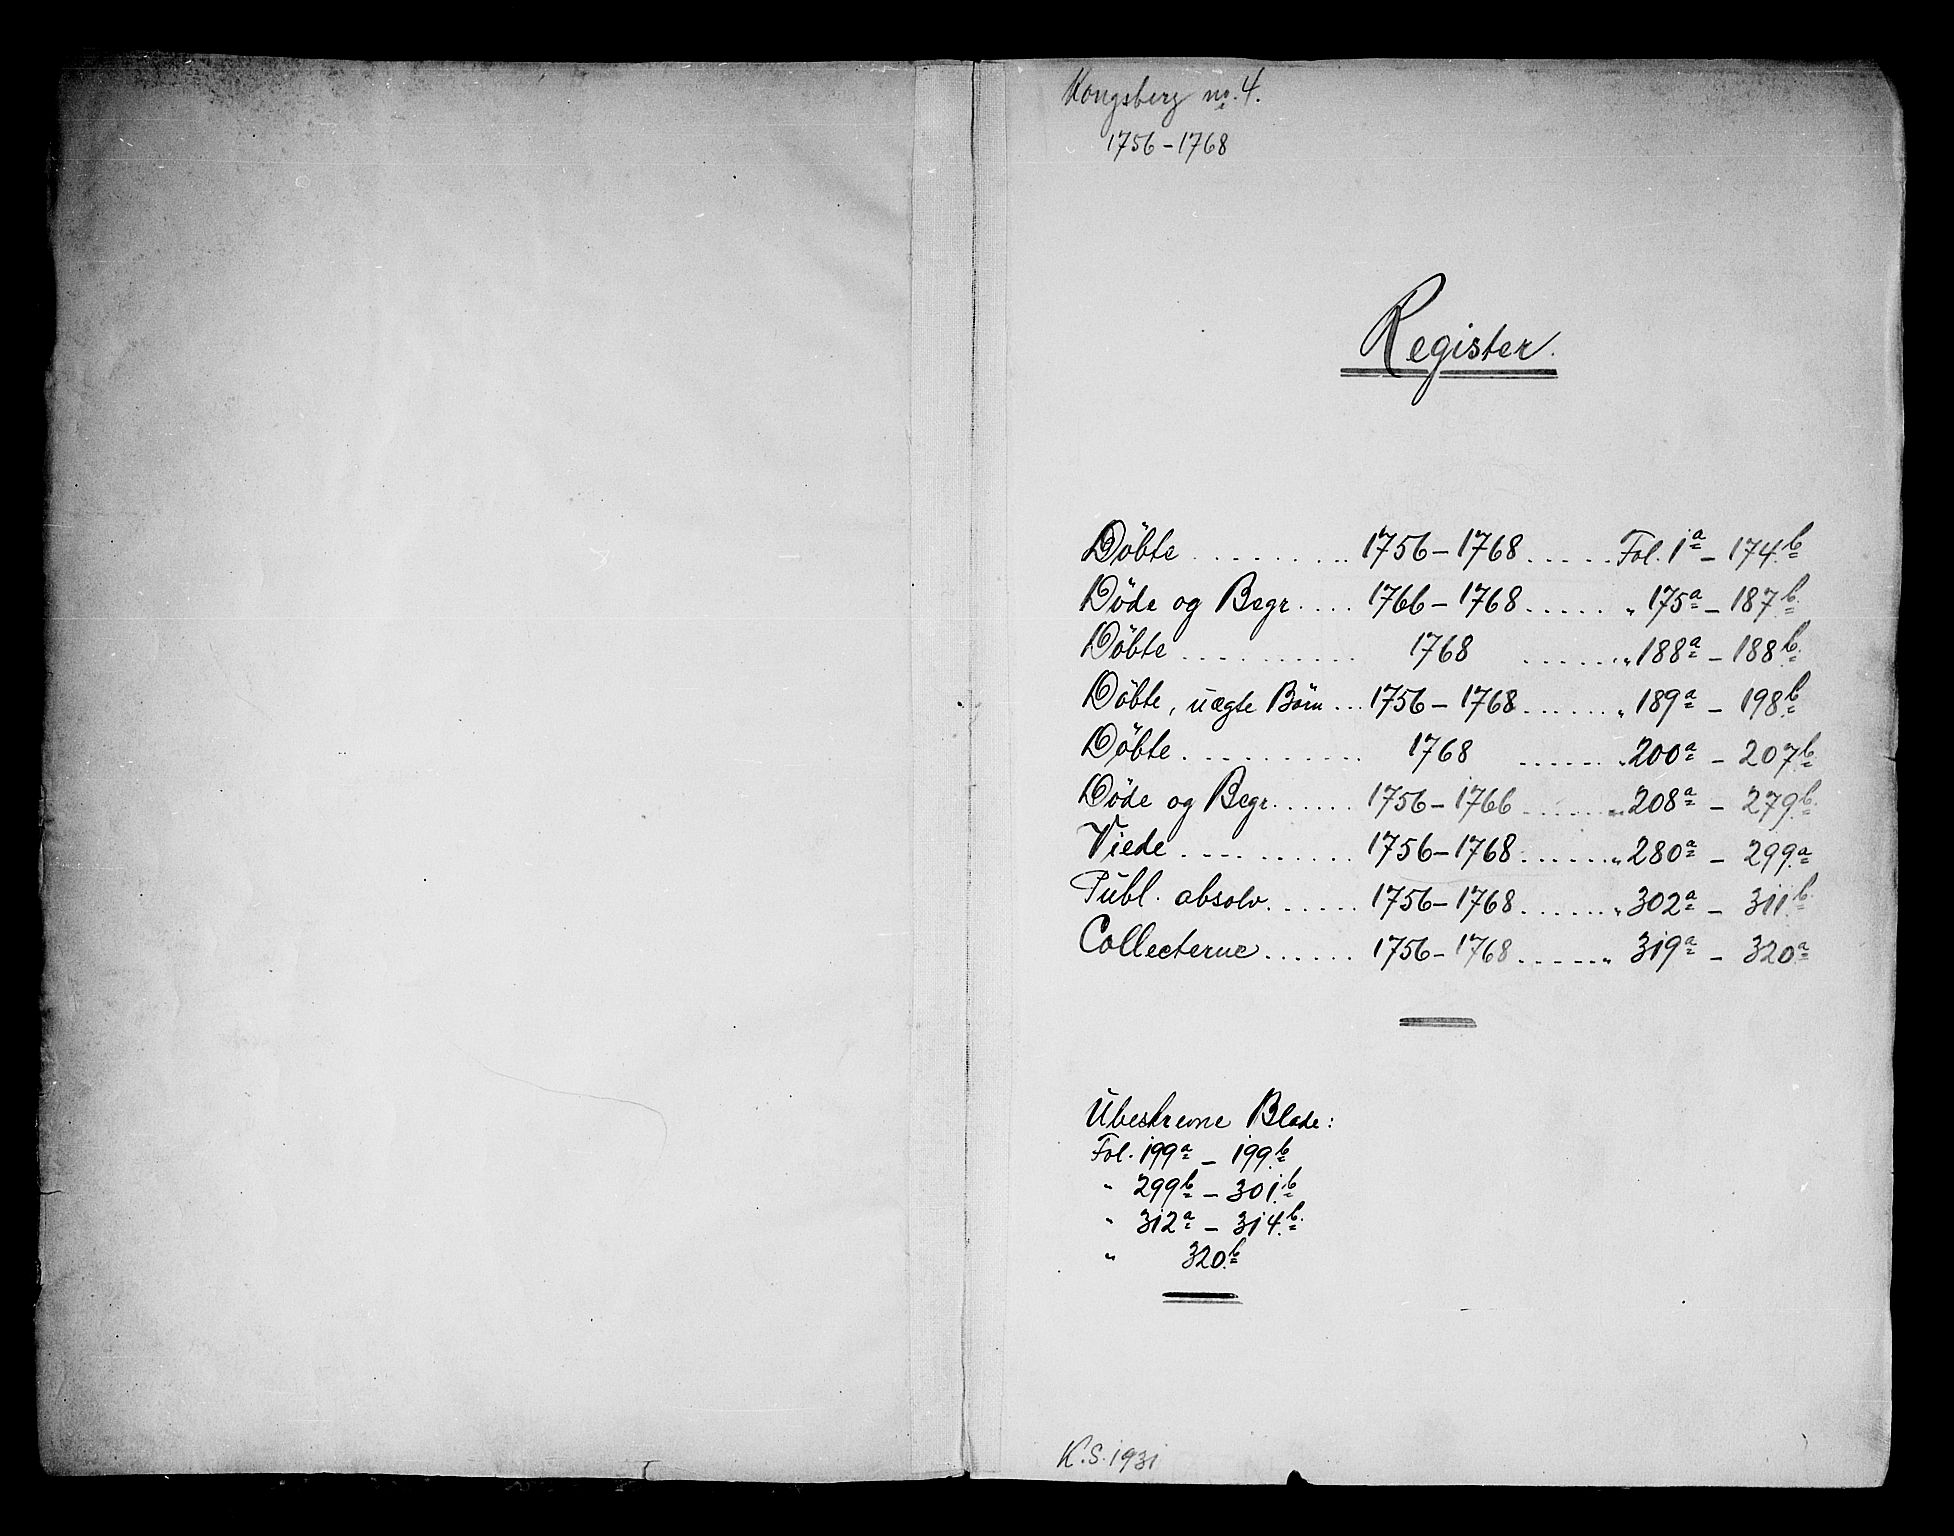 Kongsberg no. 4.
1756-1768
Register.
Döbte . . . . . . . . . . 1756-1768 . . . . . Fol. 1a - 174b
Döde og Begr. . . . 1766-1768 . . . . . . „ 175a - 187b
Döbte . . . . . . . . . . . 1768 . . . . . . „ 188a - 188b
Döbte, uægte Börn . . . 1756-1768 . . . . . . „ 189a - 198b
Döbte . . . . . . . . . . . 1768 . . . . . . „ 200a - 207b
Döde og Begr. . . . . . 1756-1766 . . . . . . „ 208a - 279b
Viede . . . . . . . . . . 1756-1768 . . . . . . „ 280a - 299a
Publ. absolv. . . . . . . 1756-1768 . . . . . . „ 302a - 311b
Collecterne . . . . . . 1756-1768 . . . . . . „ 319a - 320a
Ubeskrevne Blade:
Fol. 199a - 199b
„ 299b - 301b
„ 312a - 314b
„ 320b
K.S. 1931